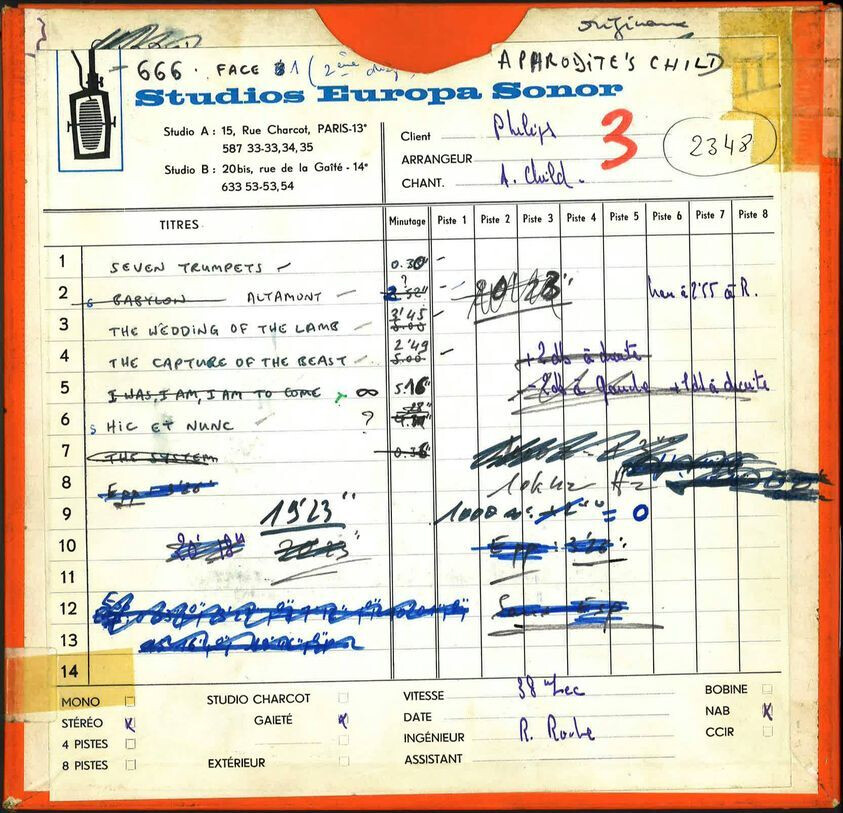 originaux
666. FACE 1 (2ème disque) APHRODITE'S CHILD
Studios Europa Sonor
Studio A : 15, Rue Charcot, PARIS-13e
587 33-33,34,35
Studio B : 20bis, rue de la Gaîté - 14e
633 53-53,54
Client Philips
ARRANGEUR
CHANT. A. Child.
3
2348
TITRES Minutage Piste 1 Piste 2 Piste 3 Piste 4 Piste 5 Piste 6 Piste 7 Piste 8
1 SEVEN TRUMPETS 0.30
2 BABYLON ALTAMONT ? 20'23"
3 THE WEDDING OF THE LAMB 3'45 5.00
4 THE CAPTURE OF THE BEAST 2'49 5.00 +2db à droite
5 I WAS, I AM, I AM TO COME ∞ 5.16" -2db à gauche +1db à droite
6 S HIC ET NUNC ?
7 THE SYSTEM
8 Epp 3'26" 10kHz Hz
9 19'23" 1000 = 0
10 20'23 Epp : 3'26"
11
12
13
14
MONO
STÉRÉO X
4 PISTES
8 PISTES
STUDIO CHARCOT
GAIETÉ X
EXTÉRIEUR
VITESSE 38
DATE
INGÉNIEUR R. Roche
ASSISTANT
BOBINE
NAB X
CCIR